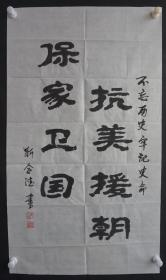 不忘历史牢记史命
抗美援朝
保家卫国
靳金德书